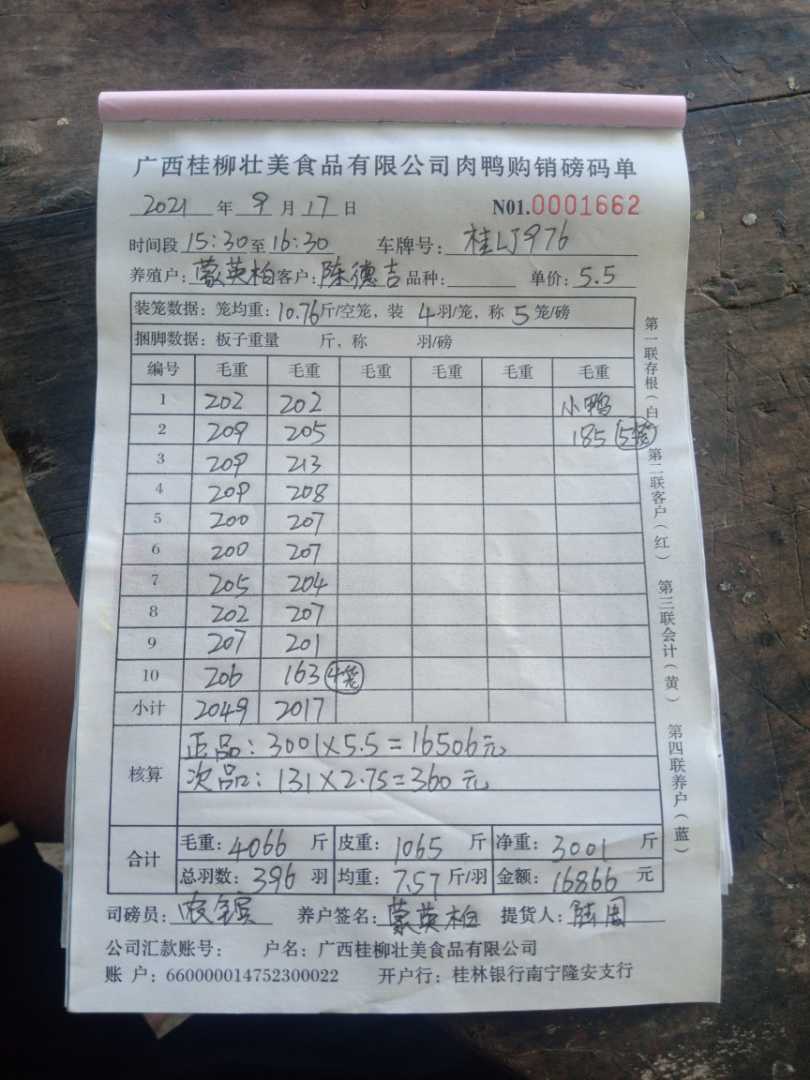 广西桂柳壮美食品有限公司肉鸭购销磅码单
2021年9月17日 N01.0001662
时间段15:30至16:30 车牌号:桂LJ976
养殖户:蒙英柏客户:陈德吉品种: 单价:5.5
装笼数据:笼均重:10.76斤/空笼,装4羽/笼,称5笼/磅
捆脚数据:板子重量 斤,称 羽/磅
编号 毛重 毛重 毛重 毛重 毛重 毛重
1 202 202 小鸭
2 209 205 185 (5笼)
3 209 213
4 209 208
5 200 207
6 200 207
7 205 204
8 202 207
9 207 201
10 206 163 (4笼)
小计 2049 2017
核算
正品:3001×5.5=16506元
次品:131×2.75=360元
合计
毛重:4066斤 皮重:1065斤 净重:3001斤
总羽数:396羽 均重:7.57斤/羽 金额:16866元
司磅员: 养户签名:蒙英柏 提货人:
公司汇款账号: 户名:广西桂柳壮美食品有限公司
账 户:660000014752300022 开户行:桂林银行南宁隆安支行
第一联存根(白) 第二联客户(红) 第三联会计(黄) 第四联养户(蓝)